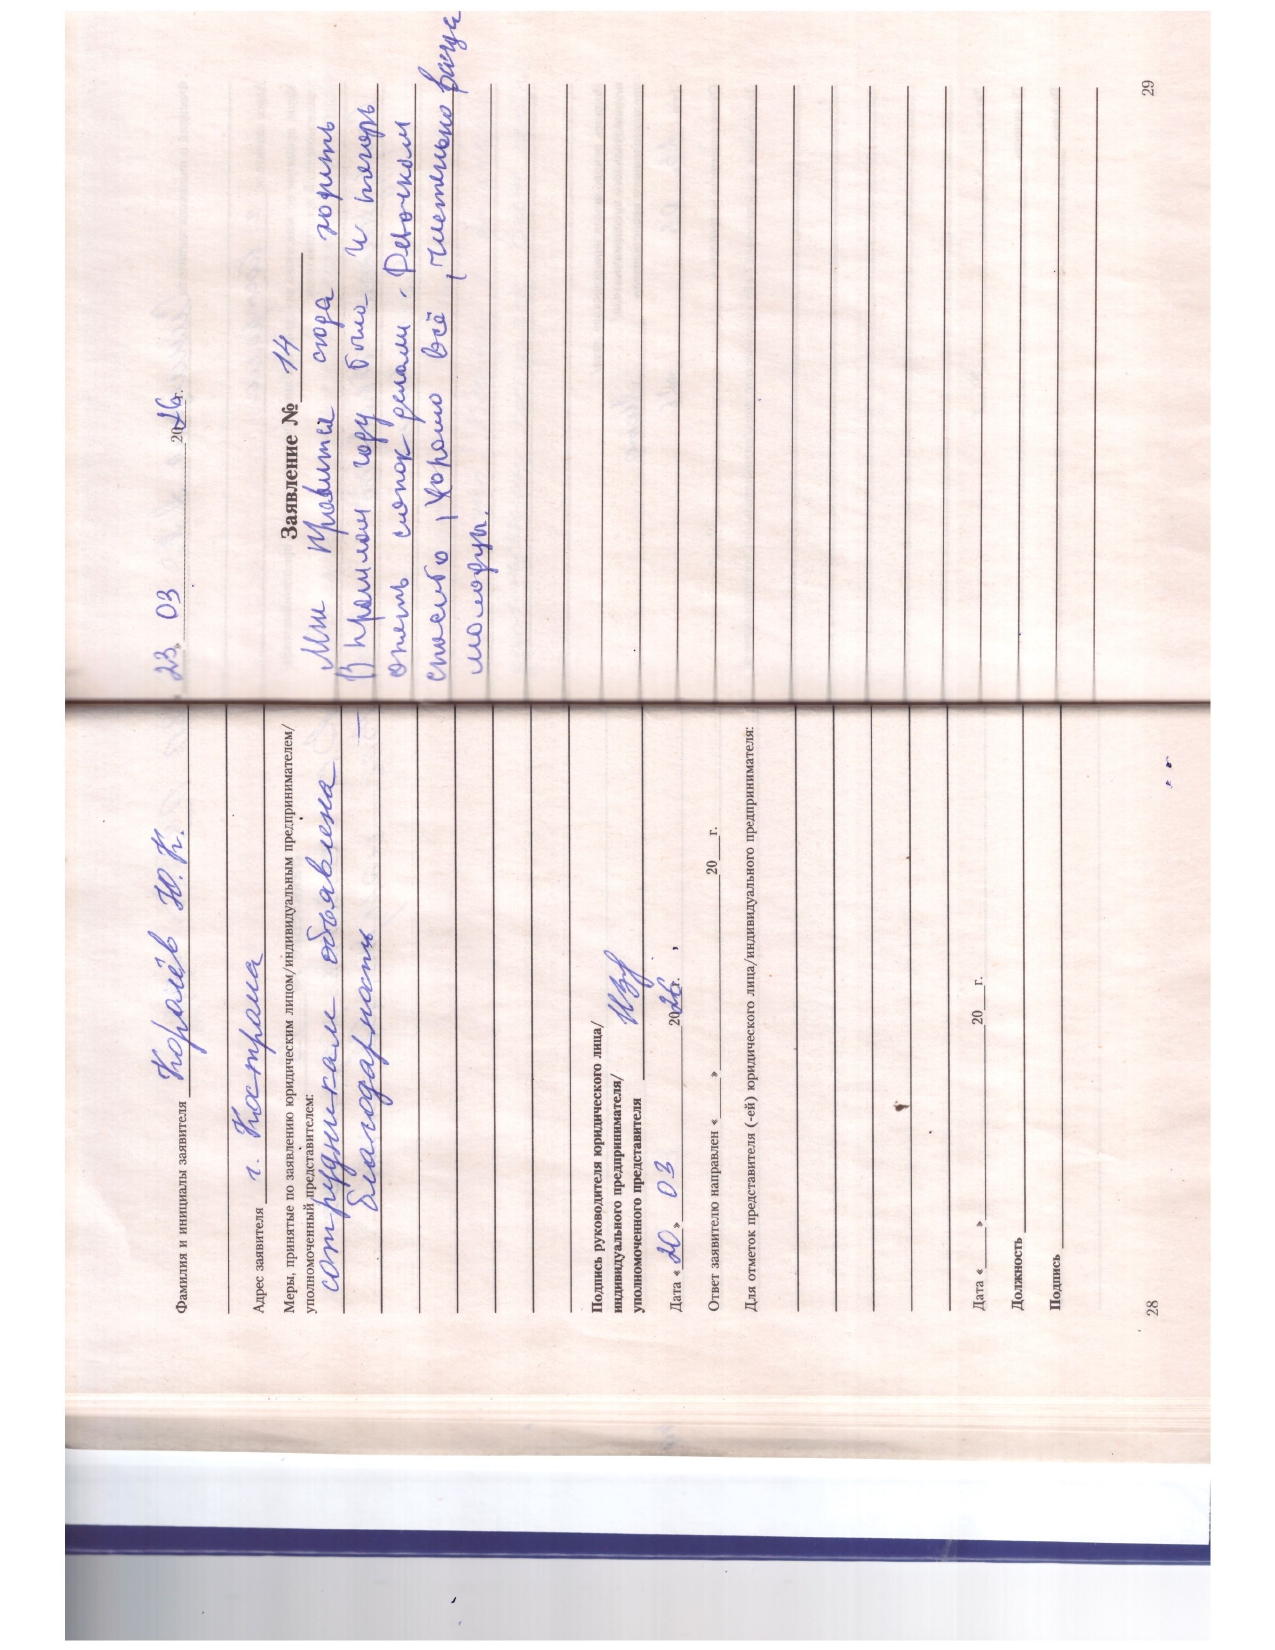 Фамилия и инициалы заявителя Королёв Ю.К.
Адрес заявителя г. Кострома
Меры, принятые по заявлению юридическим лицом/индивидуальным предпринимателем/
уполномоченный представителем:
сотрудникам объявлена
благодарность
Подпись руководителя юридического лица/
индивидуального предпринимателя/
уполномоченного представителя
Дата «20» 03 2026г.
Ответ заявителю направлен «___» ___ 20__г.
Для отметок представителя (-ей) юридического лица/индивидуального предпринимателя:
Дата «___» ___ 20__г.
Должность
Подпись
28
23» 03 2026г.
Заявление № 14
Мне нравится сюда ходить
В прошлом году была и теперь
опять снопок делали. Девочкам
спасибо, хорошо всё, чистенько ваще
молодцы.
29